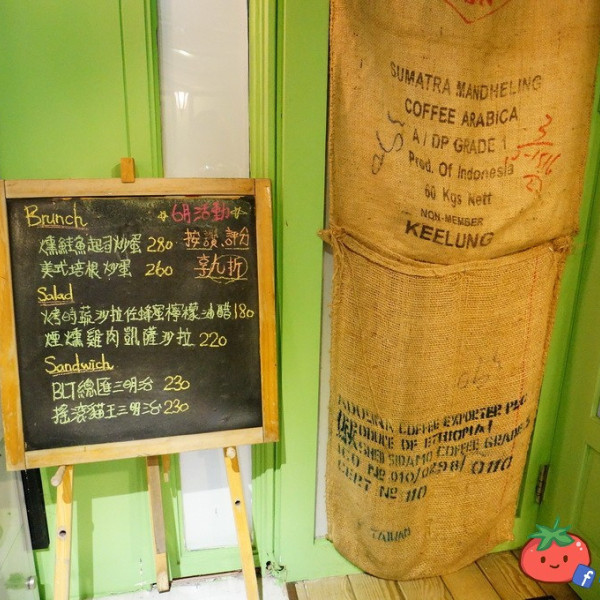 Brunch
6月活動
燻鮭魚起司炒蛋 280
按讚 評分
美式培根炒蛋 260
享九折
Salad
烤時蔬沙拉佐蜂蜜檸檬油醋 180
煙燻雞肉凱薩沙拉 220
Sandwich
BLT總匯三明治 230
搖滾貓王三明治 230
SUMATRA MANDHELING
COFFEE ARABICA
A / DP GRADE 1
Prod. Of Indonesia
60 Kgs Nett
NON-MEMBER
KEELUNG
COFFEE EXPORTER PLC
PRODUCE OF ETHIOPIA
WASHED SIDAMO COFFEE GRADE
ICO Nº 010/0298/0110
CERT Nº 110
TAIWAN
f